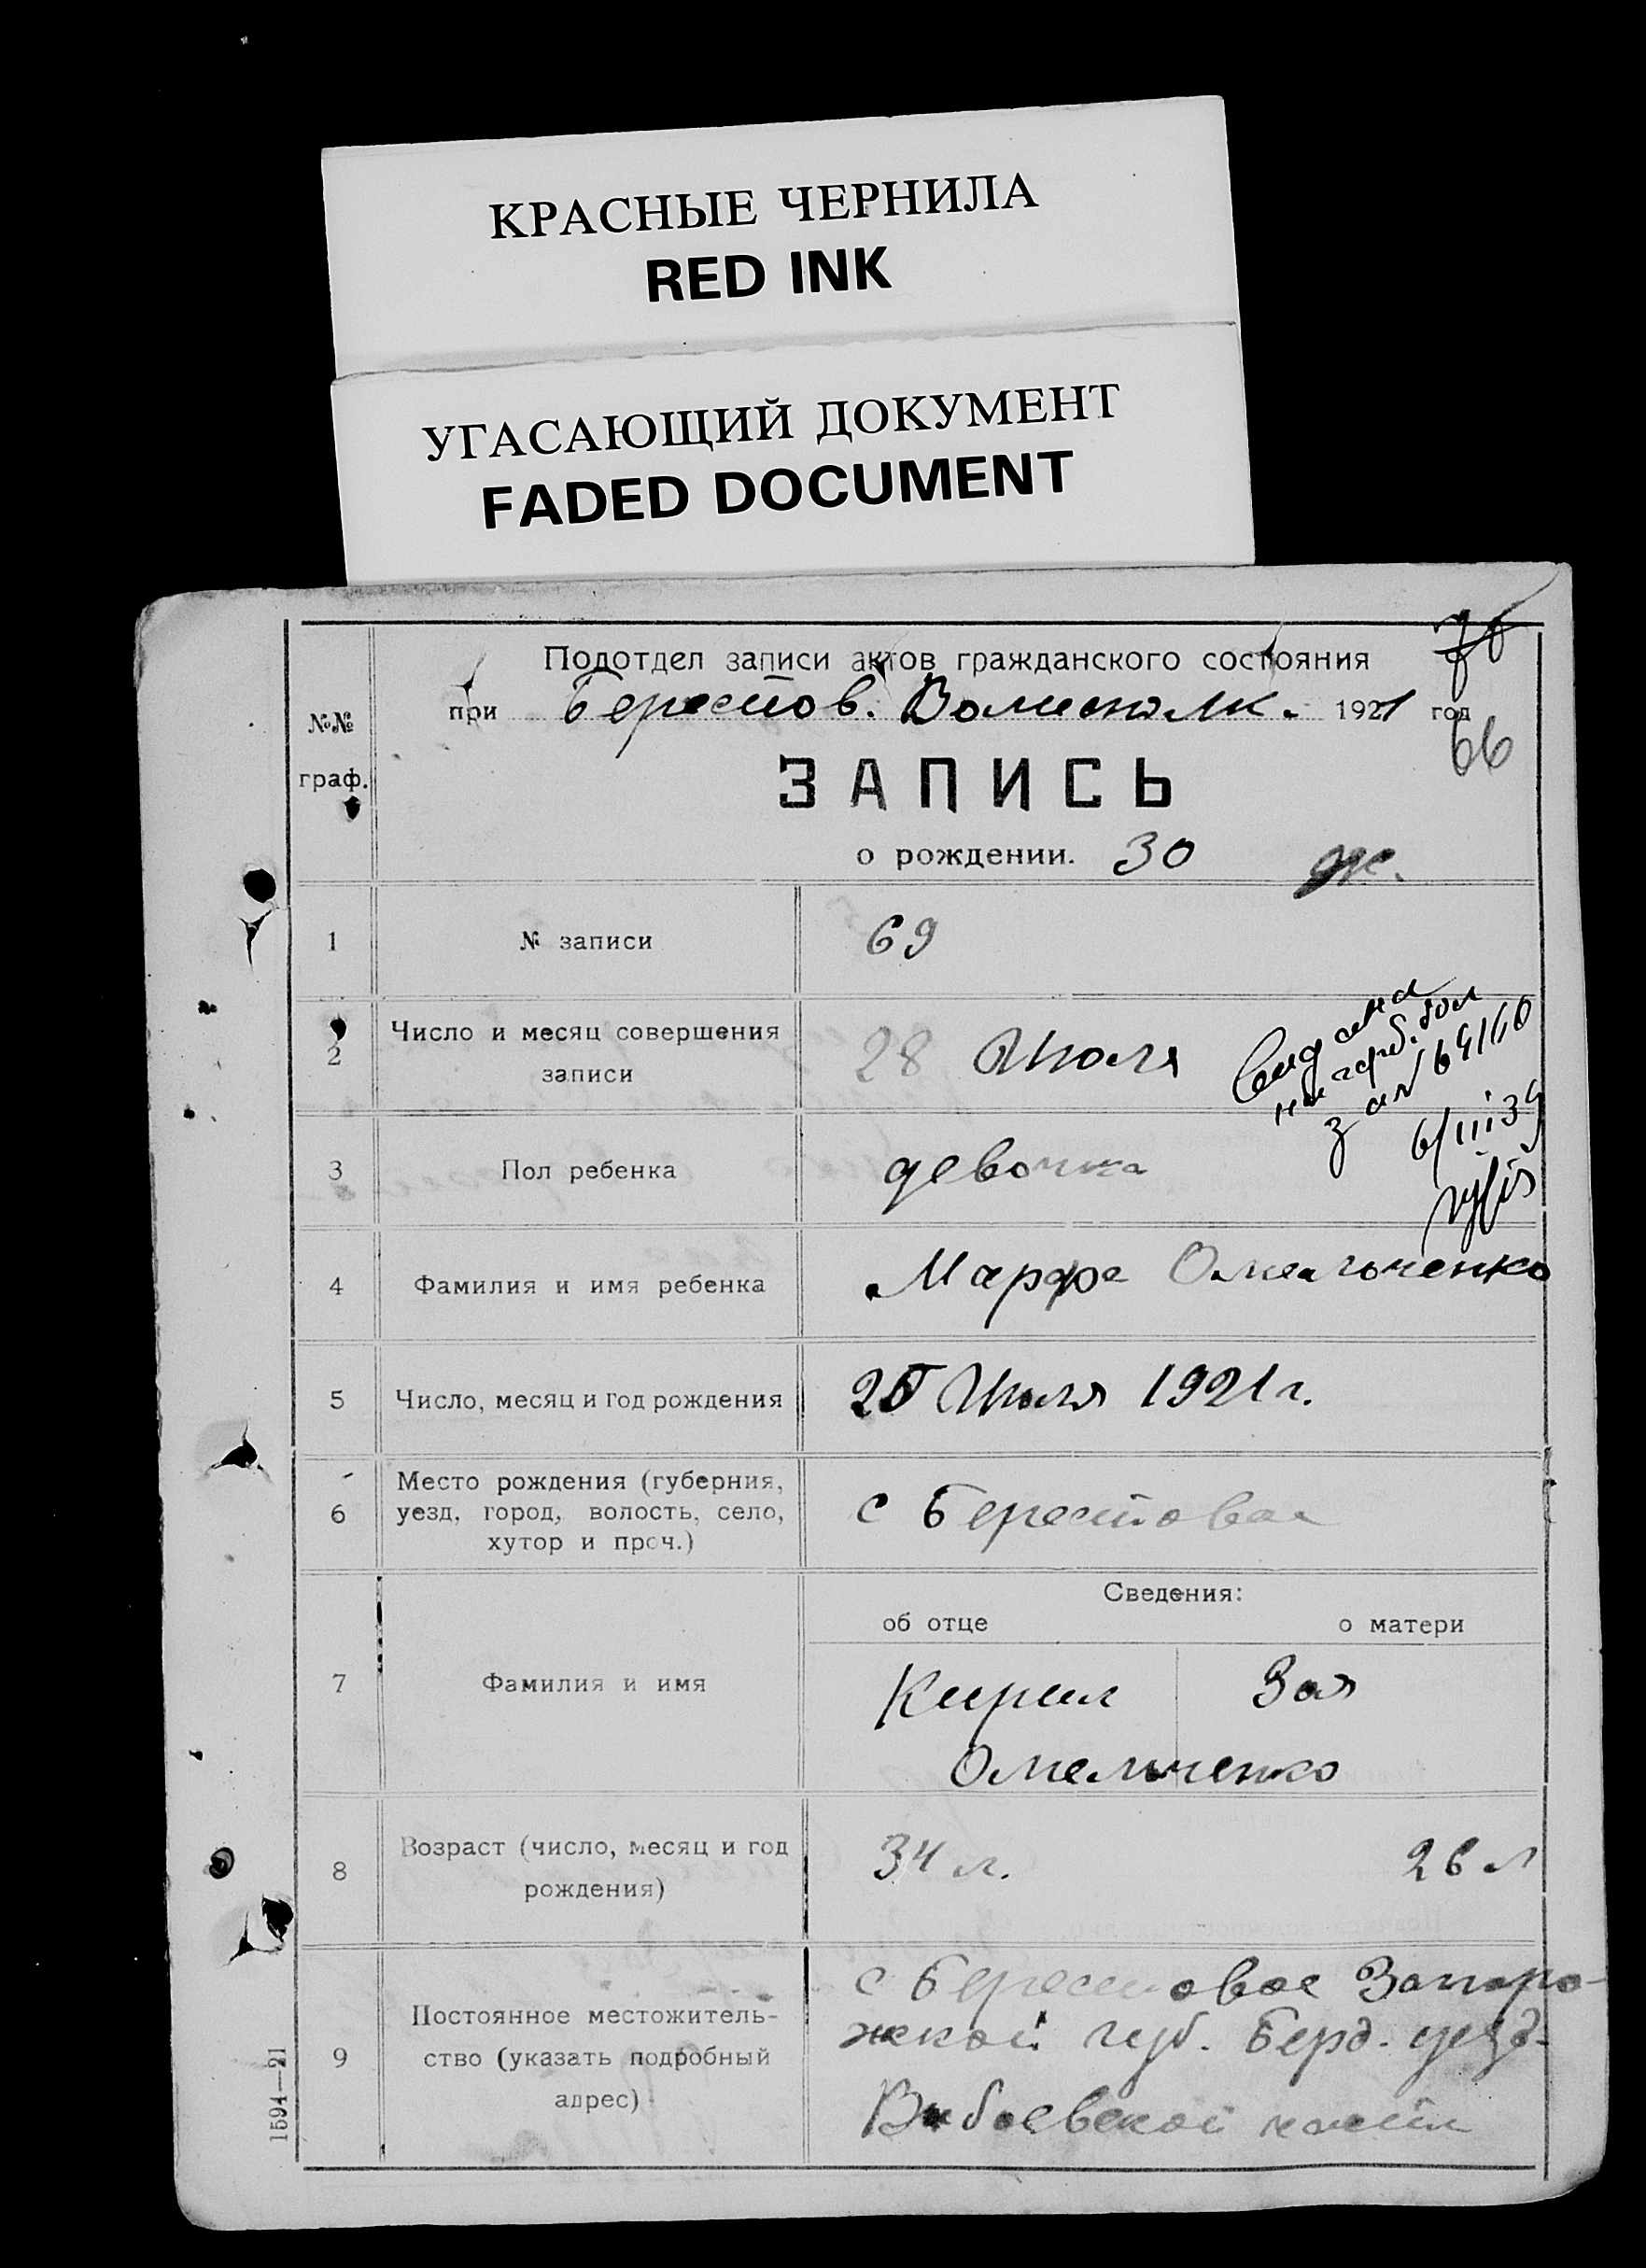 КРАСНЫЕ ЧЕРНИЛА
RED INK
УГАСАЮЩИЙ ДОКУМЕНТ
FADED DOCUMENT
Подотдел записи актов гражданского состояния
при Берестов. Волисполк. 1921 год
66
№№ граф.
ЗАПИСЬ
о рождении. 30 ж.
1 № записи 69
2 Число и месяц совершения записи 28 Июля
за № 64/40
6/III 39
3 Пол ребенка девочка
4 Фамилия и имя ребенка Марфа Омельченко
5 Число, месяц и год рождения Июля 1921 г.
6 Место рождения (губерния, уезд, город, волость, село, хутор и проч.) с Берестовое
Сведения:
об отце о матери
7 Фамилия и имя Кирил Зоя
Омельченко
8 Возраст (число, месяц и год рождения) 34 л. 26 л
9 Постоянное местожитель-
ство (указать подробный
адрес)
с Берестовое Запоро-
жской губ. Берд. уезд.
1594—21